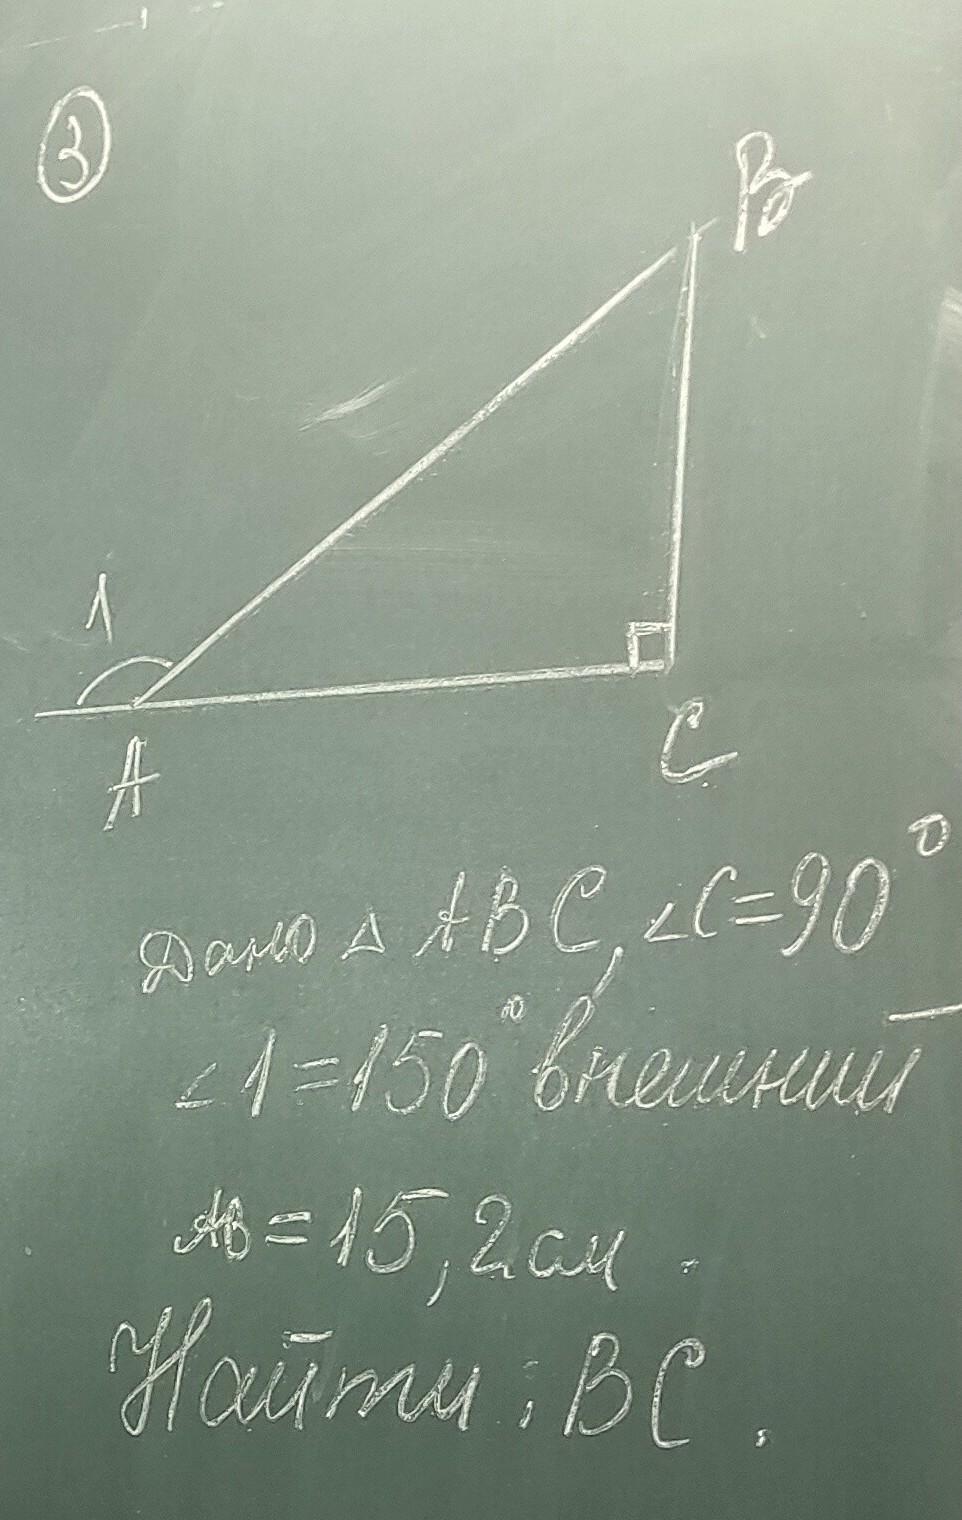 3
B
1
A
C
Дано △ ABC, ∠C=90°
∠1=150° внешний
AB=15,2см.
Найти: BC.